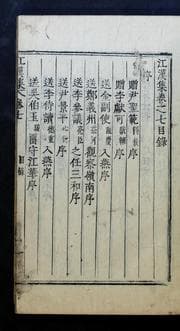 江漢集卷之七目錄
序
贈尹聖範序
贈李獻可序
送金副使入燕序
送鄭義州觀察嶺南序
送李參議之任三和序
送尹景平序
送李侍讀入燕序
送吳伯玉留守江華序
江漢集卷七 目錄